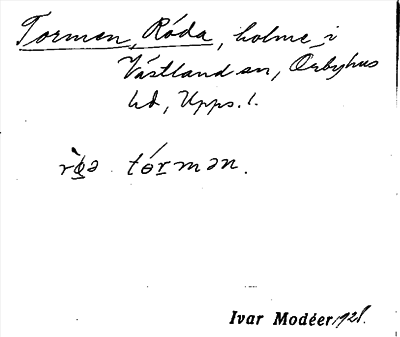 Tormen, Röda, holme i
Västlandsån, Örbyhus
hd, Upps. l.
tórmən.
Ivar Modéer 1928.